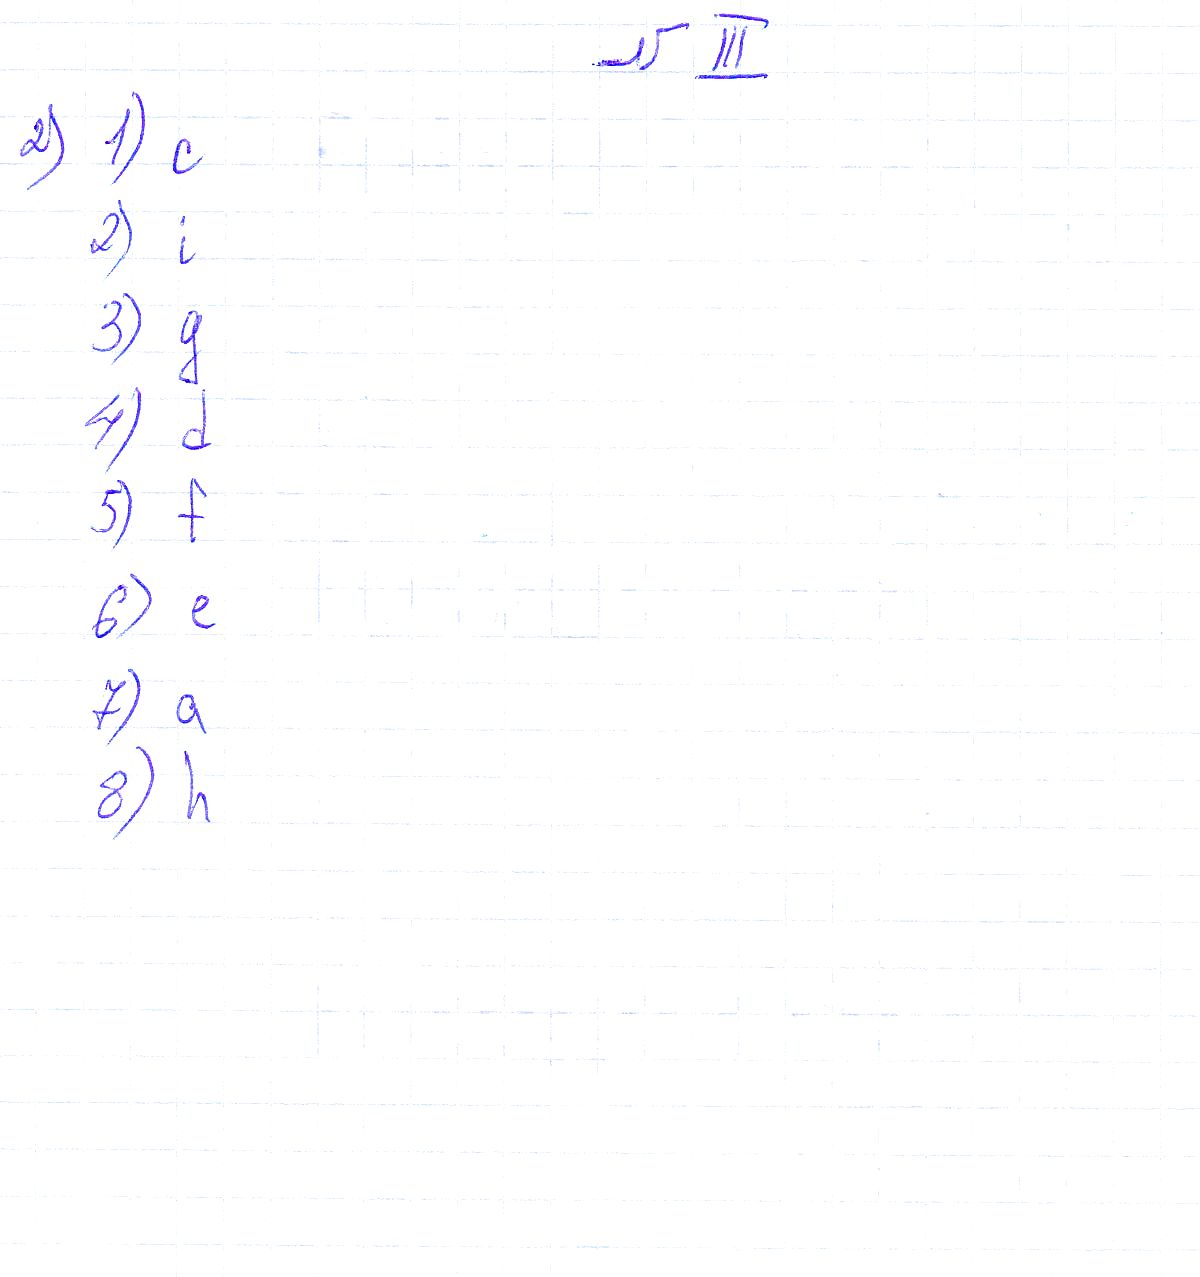 15 III
2) 1) c
2) i
3) g
4) d
5) f
6) e
7) a
8) h